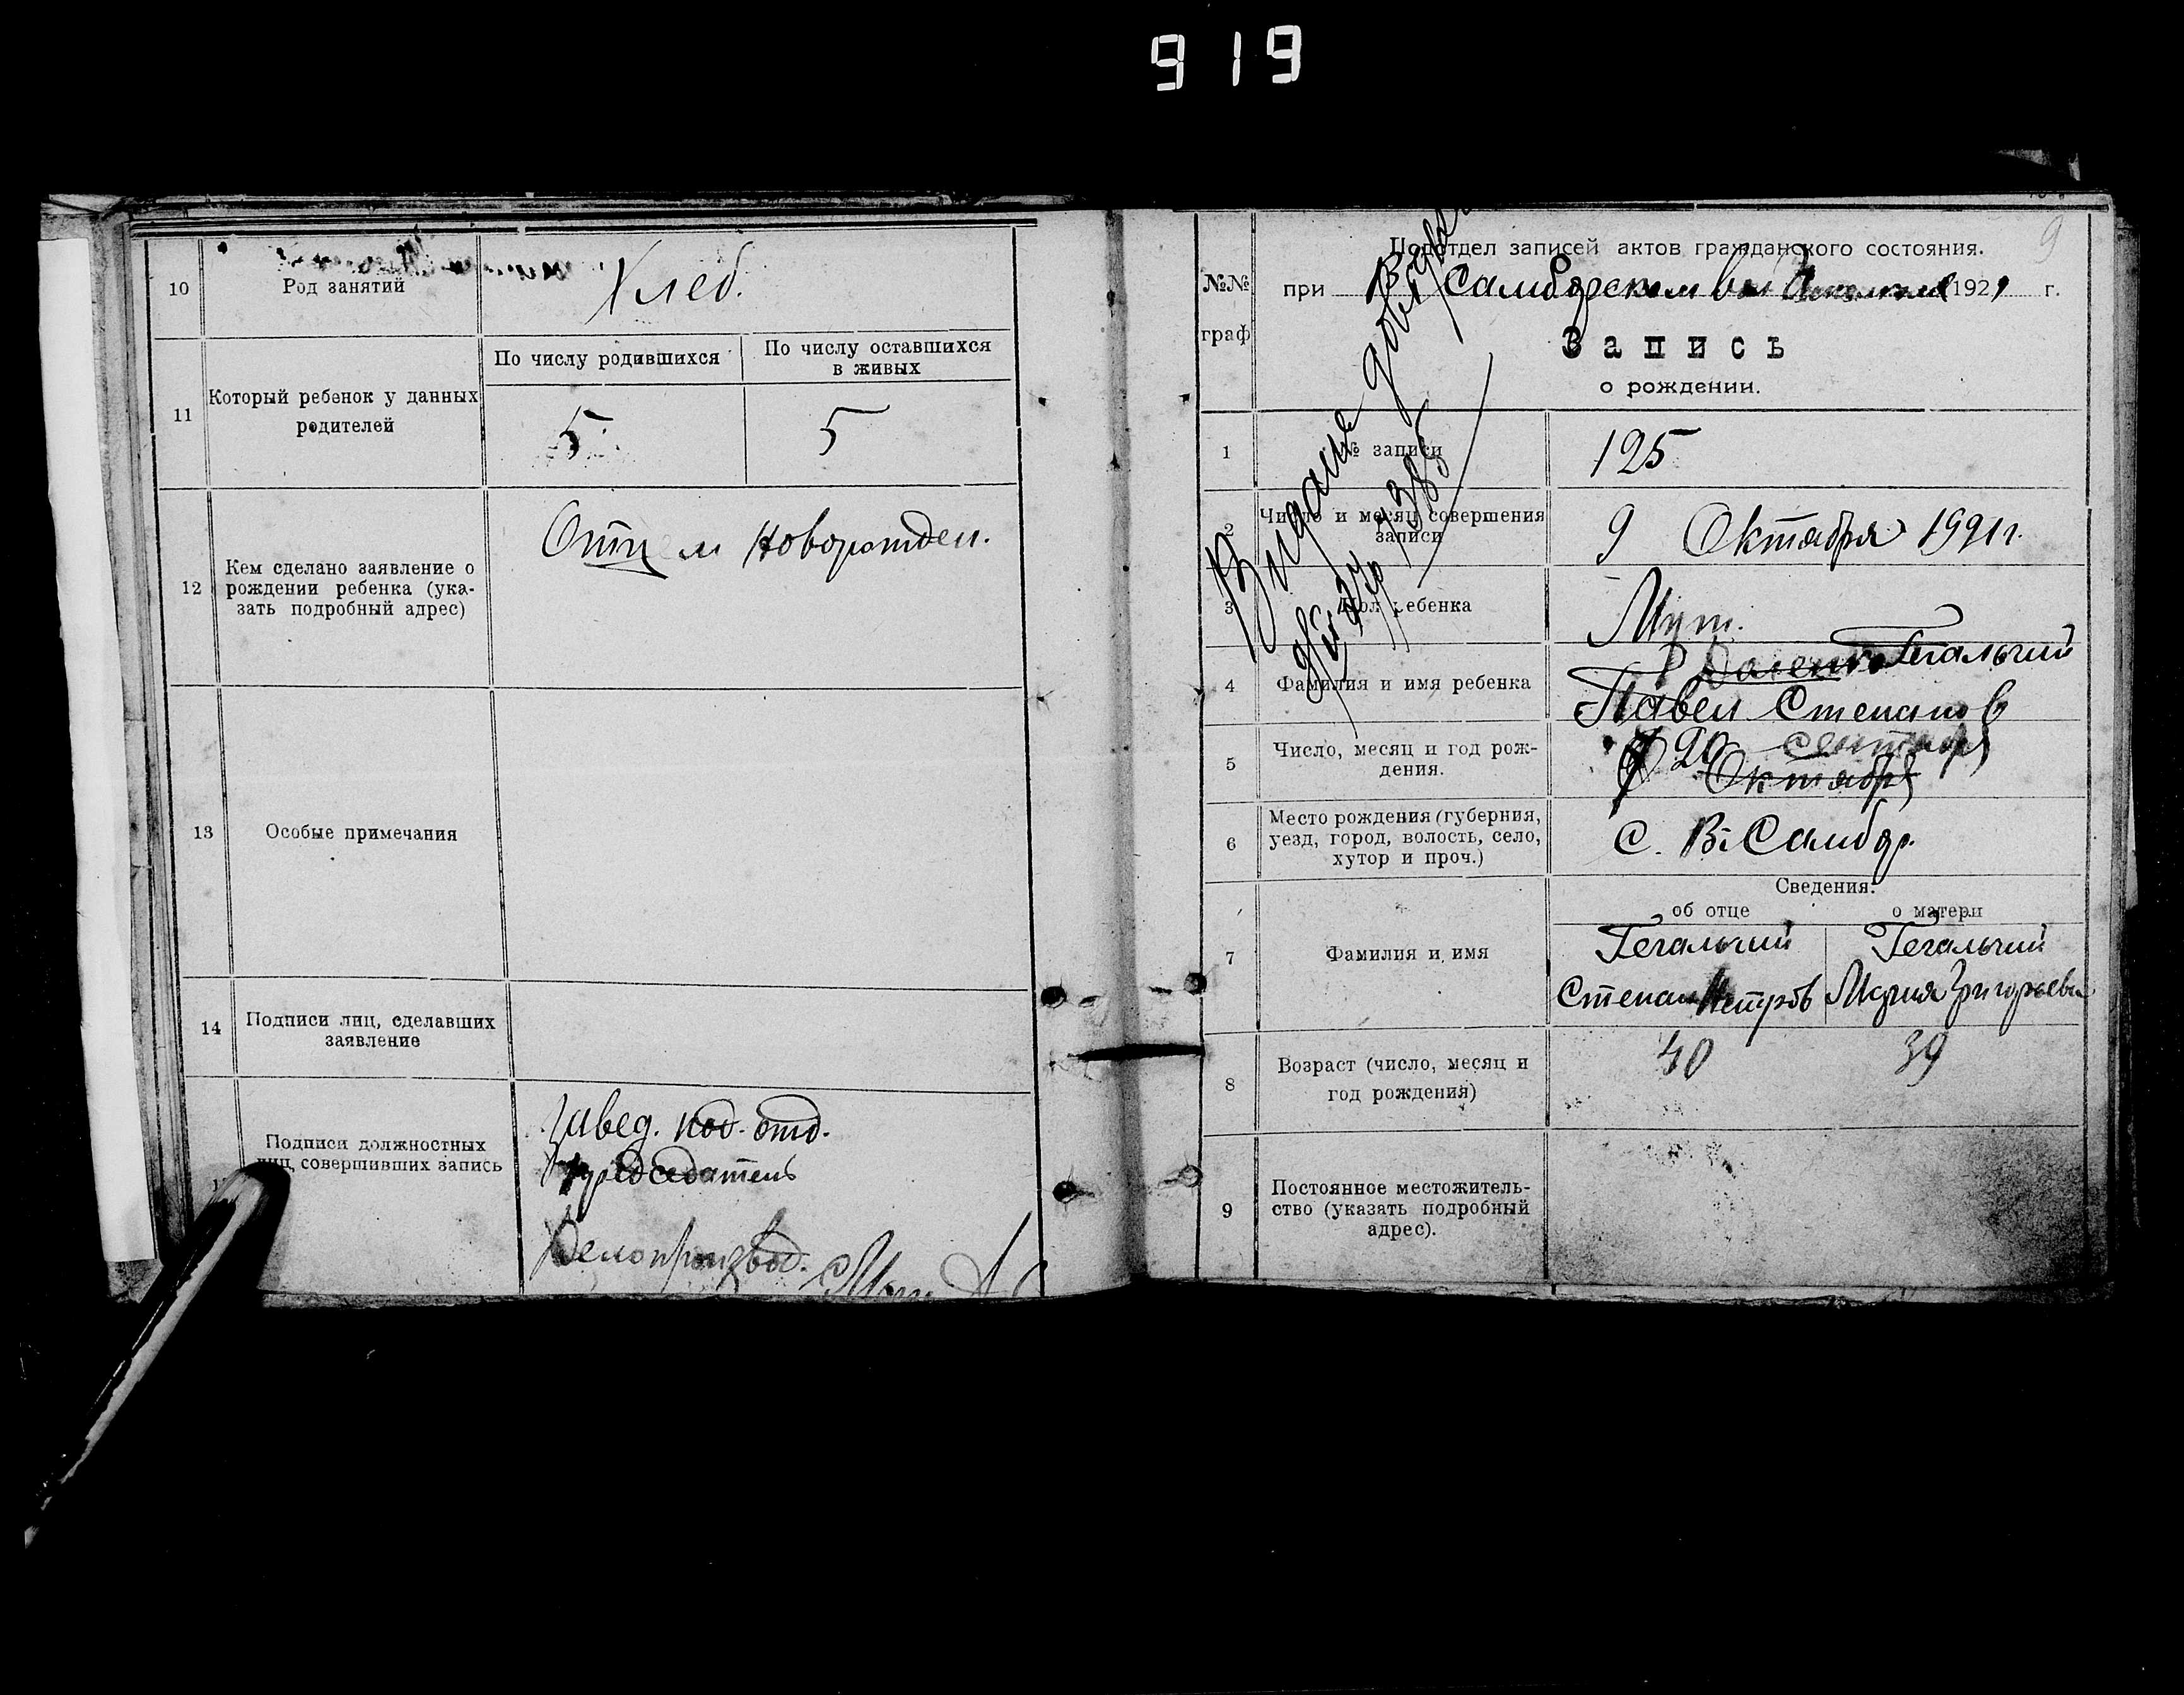 919
10
Род занятий
Хлеб.
11
Который ребенок у данных
родителей
По числу родившихся
По числу оставшихся
в живых
5
5
12
Кем сделано заявление о
рождении ребенка (ука-
зать подробный адрес)
Отцем новорожден.
13
Особые примечания
14
Подписи лиц, сделавших
заявление
Подписи должностных
лиц, совершивших запись
Завед. под. отд.
Председатель
Делопроизвод.
9
№№
граф
Подотдел записей актов гражданского состояния.
при В. Самборском вол 1921 г.
Запись
о рождении.
Видане
1
№ записи
125
2
Число и месяц совершения
записи
9 Октября 1921 г.
3
Пол ребенка
Муж.
4
Фамилия и имя ребенка
Гегальчий
Павел Степанов
5
Число, месяц и год рож-
дения.
20 сентября
Октября
6
Место рождения (губерния,
уезд, город, волость, село,
хутор и проч.)
С. В. Самбор.
Сведения:
об отце
о матери
7
Фамилия и имя
Гегальчий
Степан Петров
Гегальчий
Мария Григорьева
8
Возраст (число, месяц и
год рождения)
40
39
9
Постоянное местожитель-
ство (указать подробный
адрес).